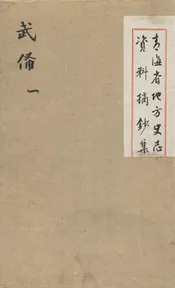 青海省地方史志
资料摘钞集
武俻
一